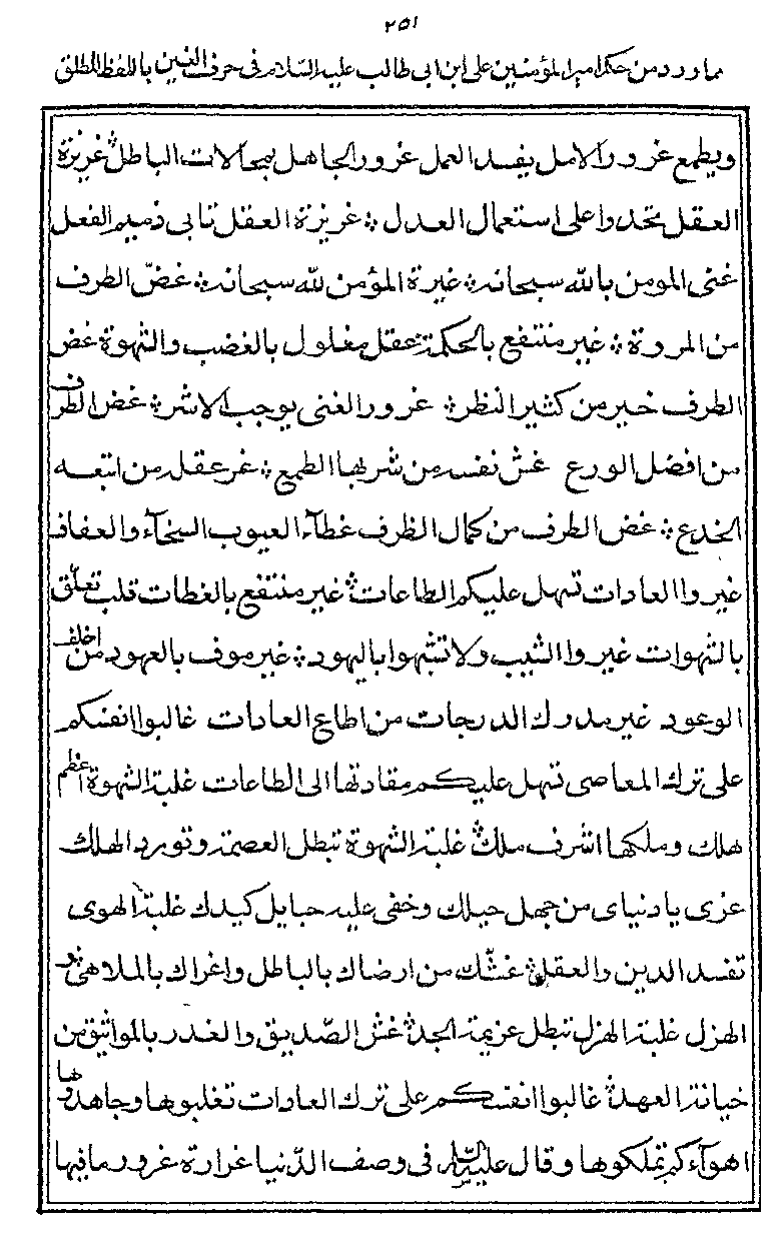 ٢٥١
مما ورد من حكم امير المؤمنين على ابن ابى طالب عليه السّلام فى حرف الغين باللفظ المطلق
ويطمع غرور الامل يفسد العمل غرور الجاهل بمحالات الباطل ؞ غريزة
العقل تحدوا على استعمال العدل ؞ غريزة العقل تابى ذميم الفعل
غنى المومن بالله سبحانه ؞ غيرة المؤمن لله سبحانه ؞ غضّ الطرف
من المروة ؞ غير منتفع بالحكمة عقل مغلول بالغضب والشهوة غض
الطرف خير من كثير النظر ؞ غرور الغنى يوجب الاشر ؞ غض الطرف
من افضل الورع غش نفسه من شربها الطمع ؞ غر عقله من اتبعه
الخدع ؞ غض الطرف من كمال الظرف غطاء العيوب السخآء والعفاف
غيروا العادات تسهل عليكم الطاعات ؞ غير منتفع بالغطات قلب تعلّق
بالشهوات غيروا الشيب ولا تشبهوا باليهود ؞ غير موف بالعهود من اخلف
الوعود غير مدرك الدرجات من اطاع العادات غالبوا انفسكم
على ترك المعاصى تسهل عليكم مقادتها الى الطاعات غلبة الشهوة اعظم
هلك وملكها اشرف ملك ؞ غلبة الشهوة تبطل العصمة وتورد الهلك
غرى يا دنياى من جهل حيلك وخفى عليه حبايل كيدك غلبة الهوى
تفسد الدين والعقل ؞ غشّك من ارضاك بالباطل واغراك بالملاهى و
الهزل غلبة الهزل تبطل عزيمة الجد ؞ غش الصّديق والغدر بالمواثيق من
خيانة العهد ؞ غالبوا انفسكم على ترك العادات تغلبوها وجاهدوها
اهوآءكم تملكوها وقال عليه السّلام فى وصف الدّنيا غرارة غرور ما فيها